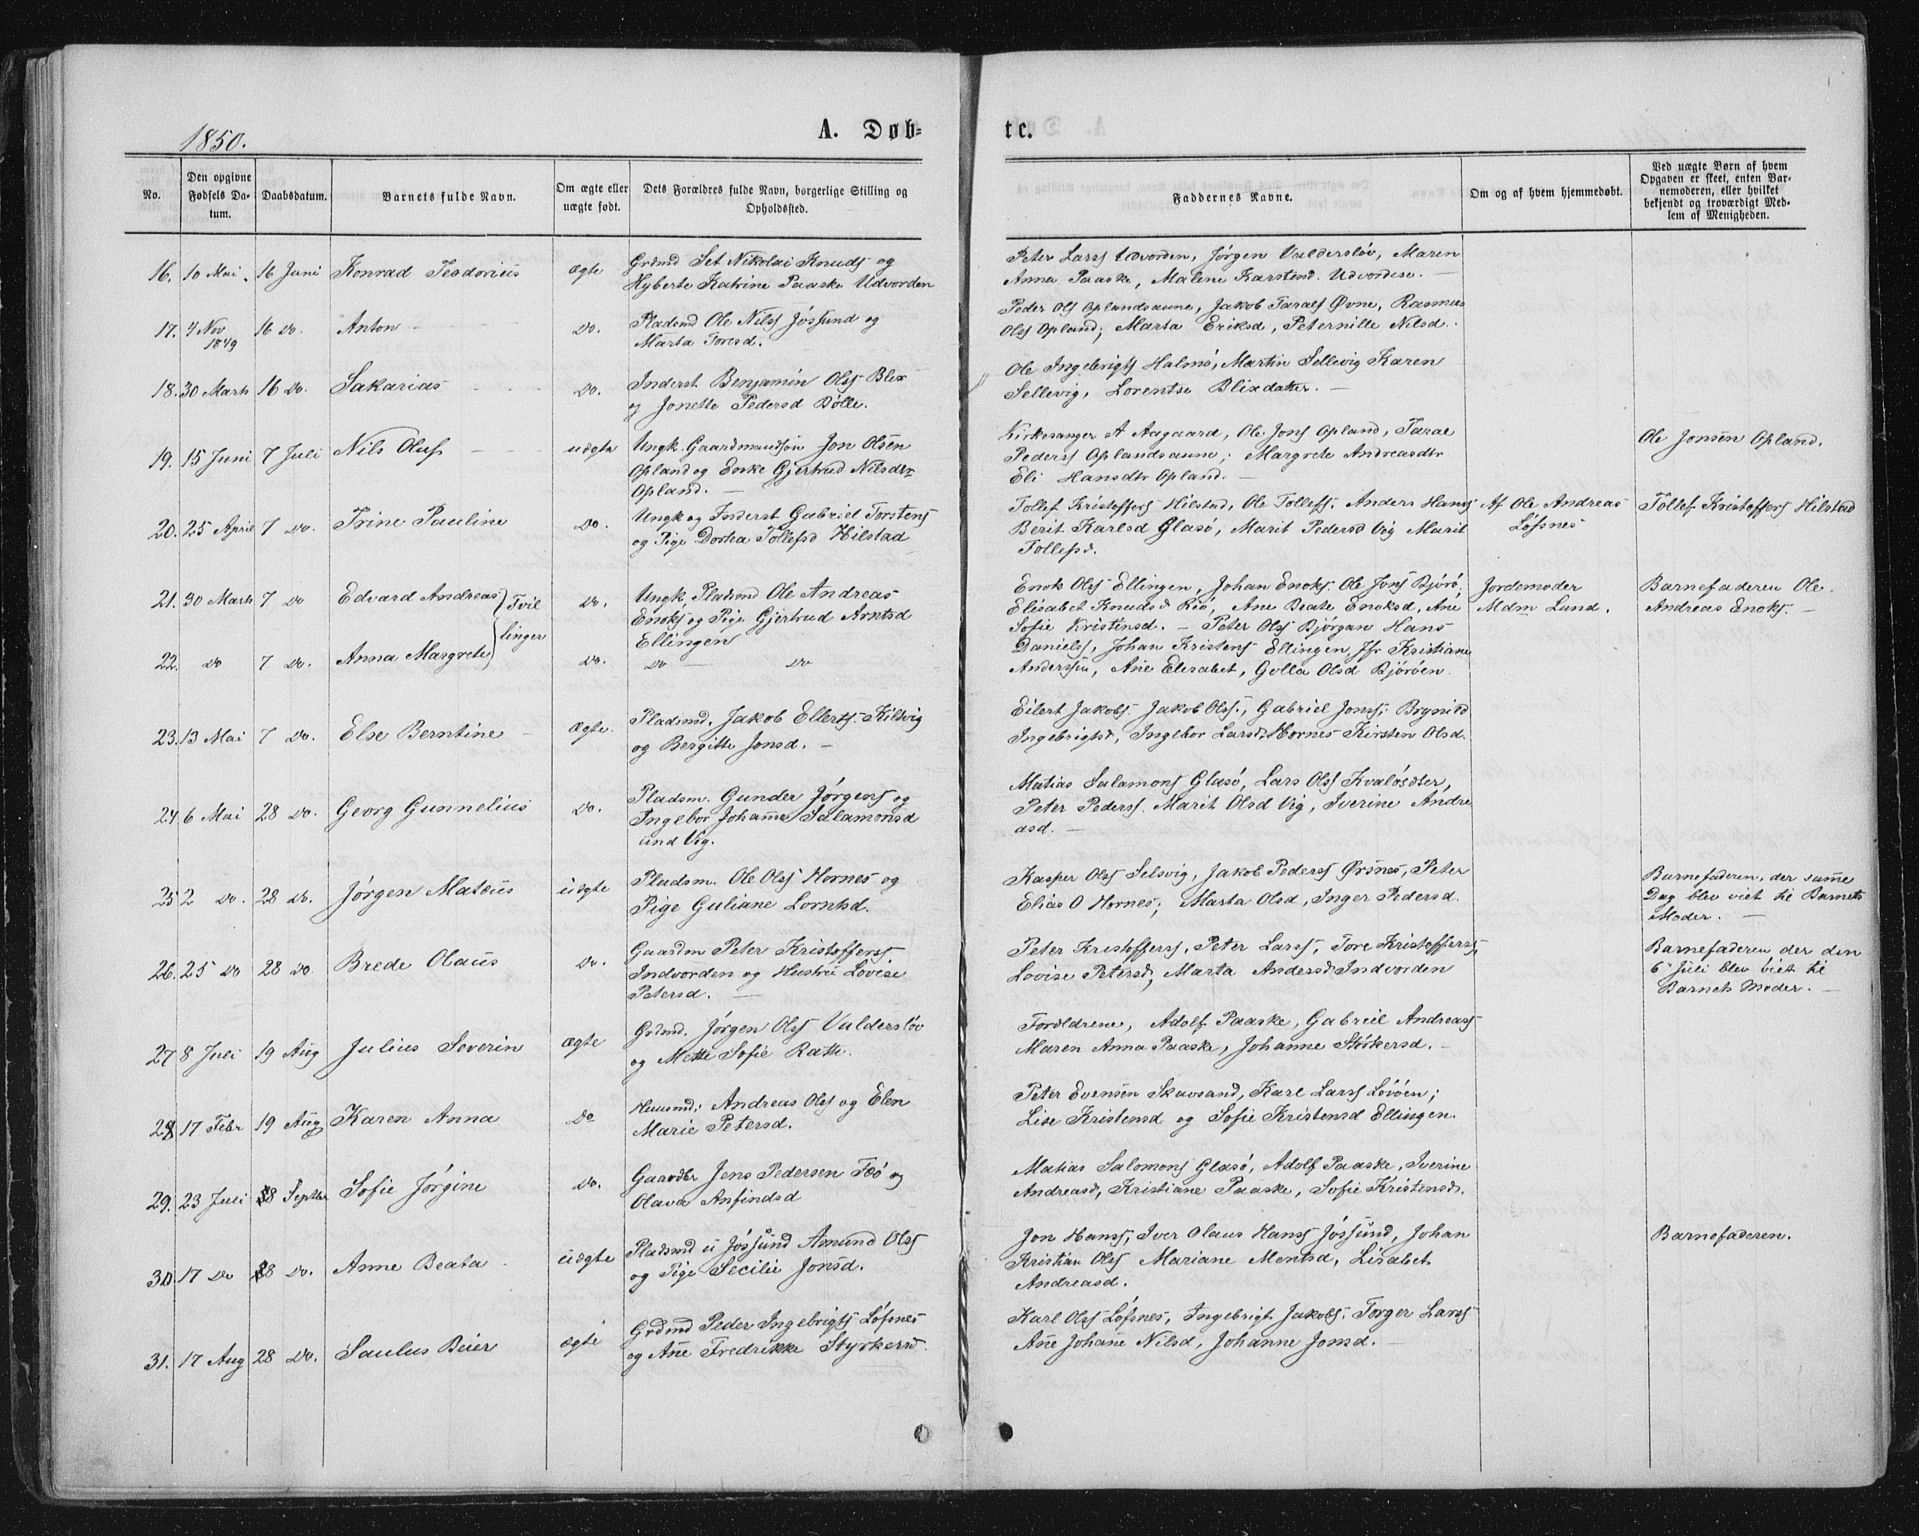 1850.
A. Døb-
te.
No.
Den opgivne
Fødsels Da-
tum.
Daabsdatum.
Barnets fulde Navn.
Om ægte eller
uægte født.
Dets Forældres fulde Navn, borgerlige Stilling og
Opholdssted.
Faddernes Navne.
Om og af hvem hjemmedøbt.
Ved uægte Børn af hvem
Opgaven er skeet, enten Bar-
nemoderen, eller hvilket
bekjendt og troværdigt Med-
lem af Menigheden.
16. 10 Mai 16 Juni Konrad Teodorius ægte
Grdmd Set Nikolai Knuds og
Hyberte Katrine Paaske Udvorden
Peter Larss Udvorden, Jørgen Valdersløv, Maren
Anna Paaske, Malene Karstend. Udvordese. —
17. 4 Nov 1849 16 Do. Anton Do.
Pladsmd Ole Nilss Jøssund og
Marta Toresd.
Peder Olss Oplandsaune, Jakob Taralss Øvne, Rasmus
Olss Opland; Marta Eriksd, Peternille Nilsd.
18. 30 Marts 16 Do. Sakarias Do.
Inderst Benjamin Olss Blix
og Jonette Pedersd Bølle.
Ole Ingebrigts Halmø, Martin Sellevig Karen
Sellevig, Lorentse Blixdatter. —
19. 15 Juni 7 Juli Nils Oluf uægte
Ungk. Gaardmandssøn Jon Olsen
Opland og Enke Gjertrud Nilsdtr
Opland. —
Kirkesanger A Aagaard, Ole Jons Opland, Taral
Pederss Oplandsaune; Margrete Andreasdtr
Eli Hansdtr Opland. —
Ole Jonsen Opland.
20. 25 April 7 Do. Trine Pauline Do.
Ungk og Inderst Gabriel Torstens
og Pige Dortea Tollefsd Hilstad
Tollef Kristofferss Hilstad, Ole Tollefs, Anders Hanss
Berit Karlsd Glasø, Marit Pedersd Vig Marit
Tollefsd.
Af Ole Andreas
Løfsnes
Tollef Kristofferss Hilstad
21. 30 Marts 7 Do Edvard Andreas } Tvil Do.
Ungk. Pladsmd Ole Andreas
Enoks og Pige Gjertrud Arntsd
Ellingen
Enok Olss Ellingen, Johan Enoks. Ole Jons Bjørø,
Elisabet Knudsd Riø, Ane Beate Enoksd, Ane
Sofie Kristensd. — Peter Olss Bjørgan Hans
Jordemoder
Mdm Lund.
Barnefaderen Ole
Andreas Enoks. —
22. Do 7 Do. Anna Margrete } linger Do.
Do — Do
Daniels, Johan Kristens Ellingen, Jfr Kristiane
Anderssen, Ane Elisabet, Golla Olsd Bjørøen.
23. 13 Mai 7 Do. Else Berntine ægte.
Pladsmd. Jakob Ellerts. Kilvig
og Bergitte Jonsd. —
Eilert Jakobs. Jakob Olss., Gabriel Jonss, Brynild
Ingebrigtsd, Ingebor Larsd. Hornes Kirsten Olsd.
24. 6 Mai 28 Do. Georg Gunnelius Do.
Pladsm. Gunder Jørgens og
Ingebor Johanne Salamonsd
und Vig.
Matias Salamons Glasø, Lars Olss Kvaløsæter,
Peter Pederss. Marit Olsd Vig, Iverine Andre
asd. —
25 2 Do. 28 Do. Jørgen Mateus uægte
Pladsm. Ole Olss Hornes og
Pige Guliane Lorntsd.
Kasper Olss Selsvig, Jakob Pederss Ørsnes, Peter
Elias O Hornes; Marta Olsd, Inger Pedersd.
Barnefaderen, der samme
Dag blev viet til Barnets
Moder. —
26. 25 Do 28 Do. Brede Olaus Do.
Gaardm Peter Kristofferss.
Indvorden og Hustru Lovise
Petersd. —
Peter Kristofferss, Peter Larss, Tore Kristofferss,
Lovise Petersd, Marta Andersd. Indvorden
Barnefaderen, der den
6 Juli blev viet til
Barnets Moder. —
27 8 Juli 19 Aug Julius Severin ægte
Grdmd. Jørgen Olss Valdersløv
og Mette Sofie Rath.
Forældrene, Adolf Paaske, Gabriel Andreass
Maren Anna Paaske, Johanne Størkersd. —
28 17 Febr 19 Aug Karen Anna Do
Huusmd; Andreas Olss og Elen
Marie Petersd.
Peter Evensen Skavsand, Karl Larss Løvøen;
Lise Kristensd og Sofie Kristensd Ellingen.
29. 23 Juli 8 Septbr Sofie Jørgine Do.
Gaardbr Jens Pedersen Fæø og
Olava Anfindsd
Matias Salomons Glasø, Adolf Paaske, Iverine
Andreasd, Kristiane Paaske, Sofie Kristensd.
30. 17 Do 8 Do. Anne Beata uægte
Pladsmd u Jøssund Amund Olss
og Pige Secilie Jonsd.
Jon Hanss; Iver Olaus Hanss Jøssund, Johan
Kristian Olss Mariane Mentsd, Lisabet
Andreasd.
Barnefaderen.
31. 17 Aug 28 Do. Saulus Beier ægte
Grdmd Peder Ingebrigts Løfsnes
og Ane Fredrikke Styrkersd.
Karl Olss Løfsnes, Ingebrigt Jakobs, Torger Larss
Ane Johane Nilsd, Johanne Jonsd. —